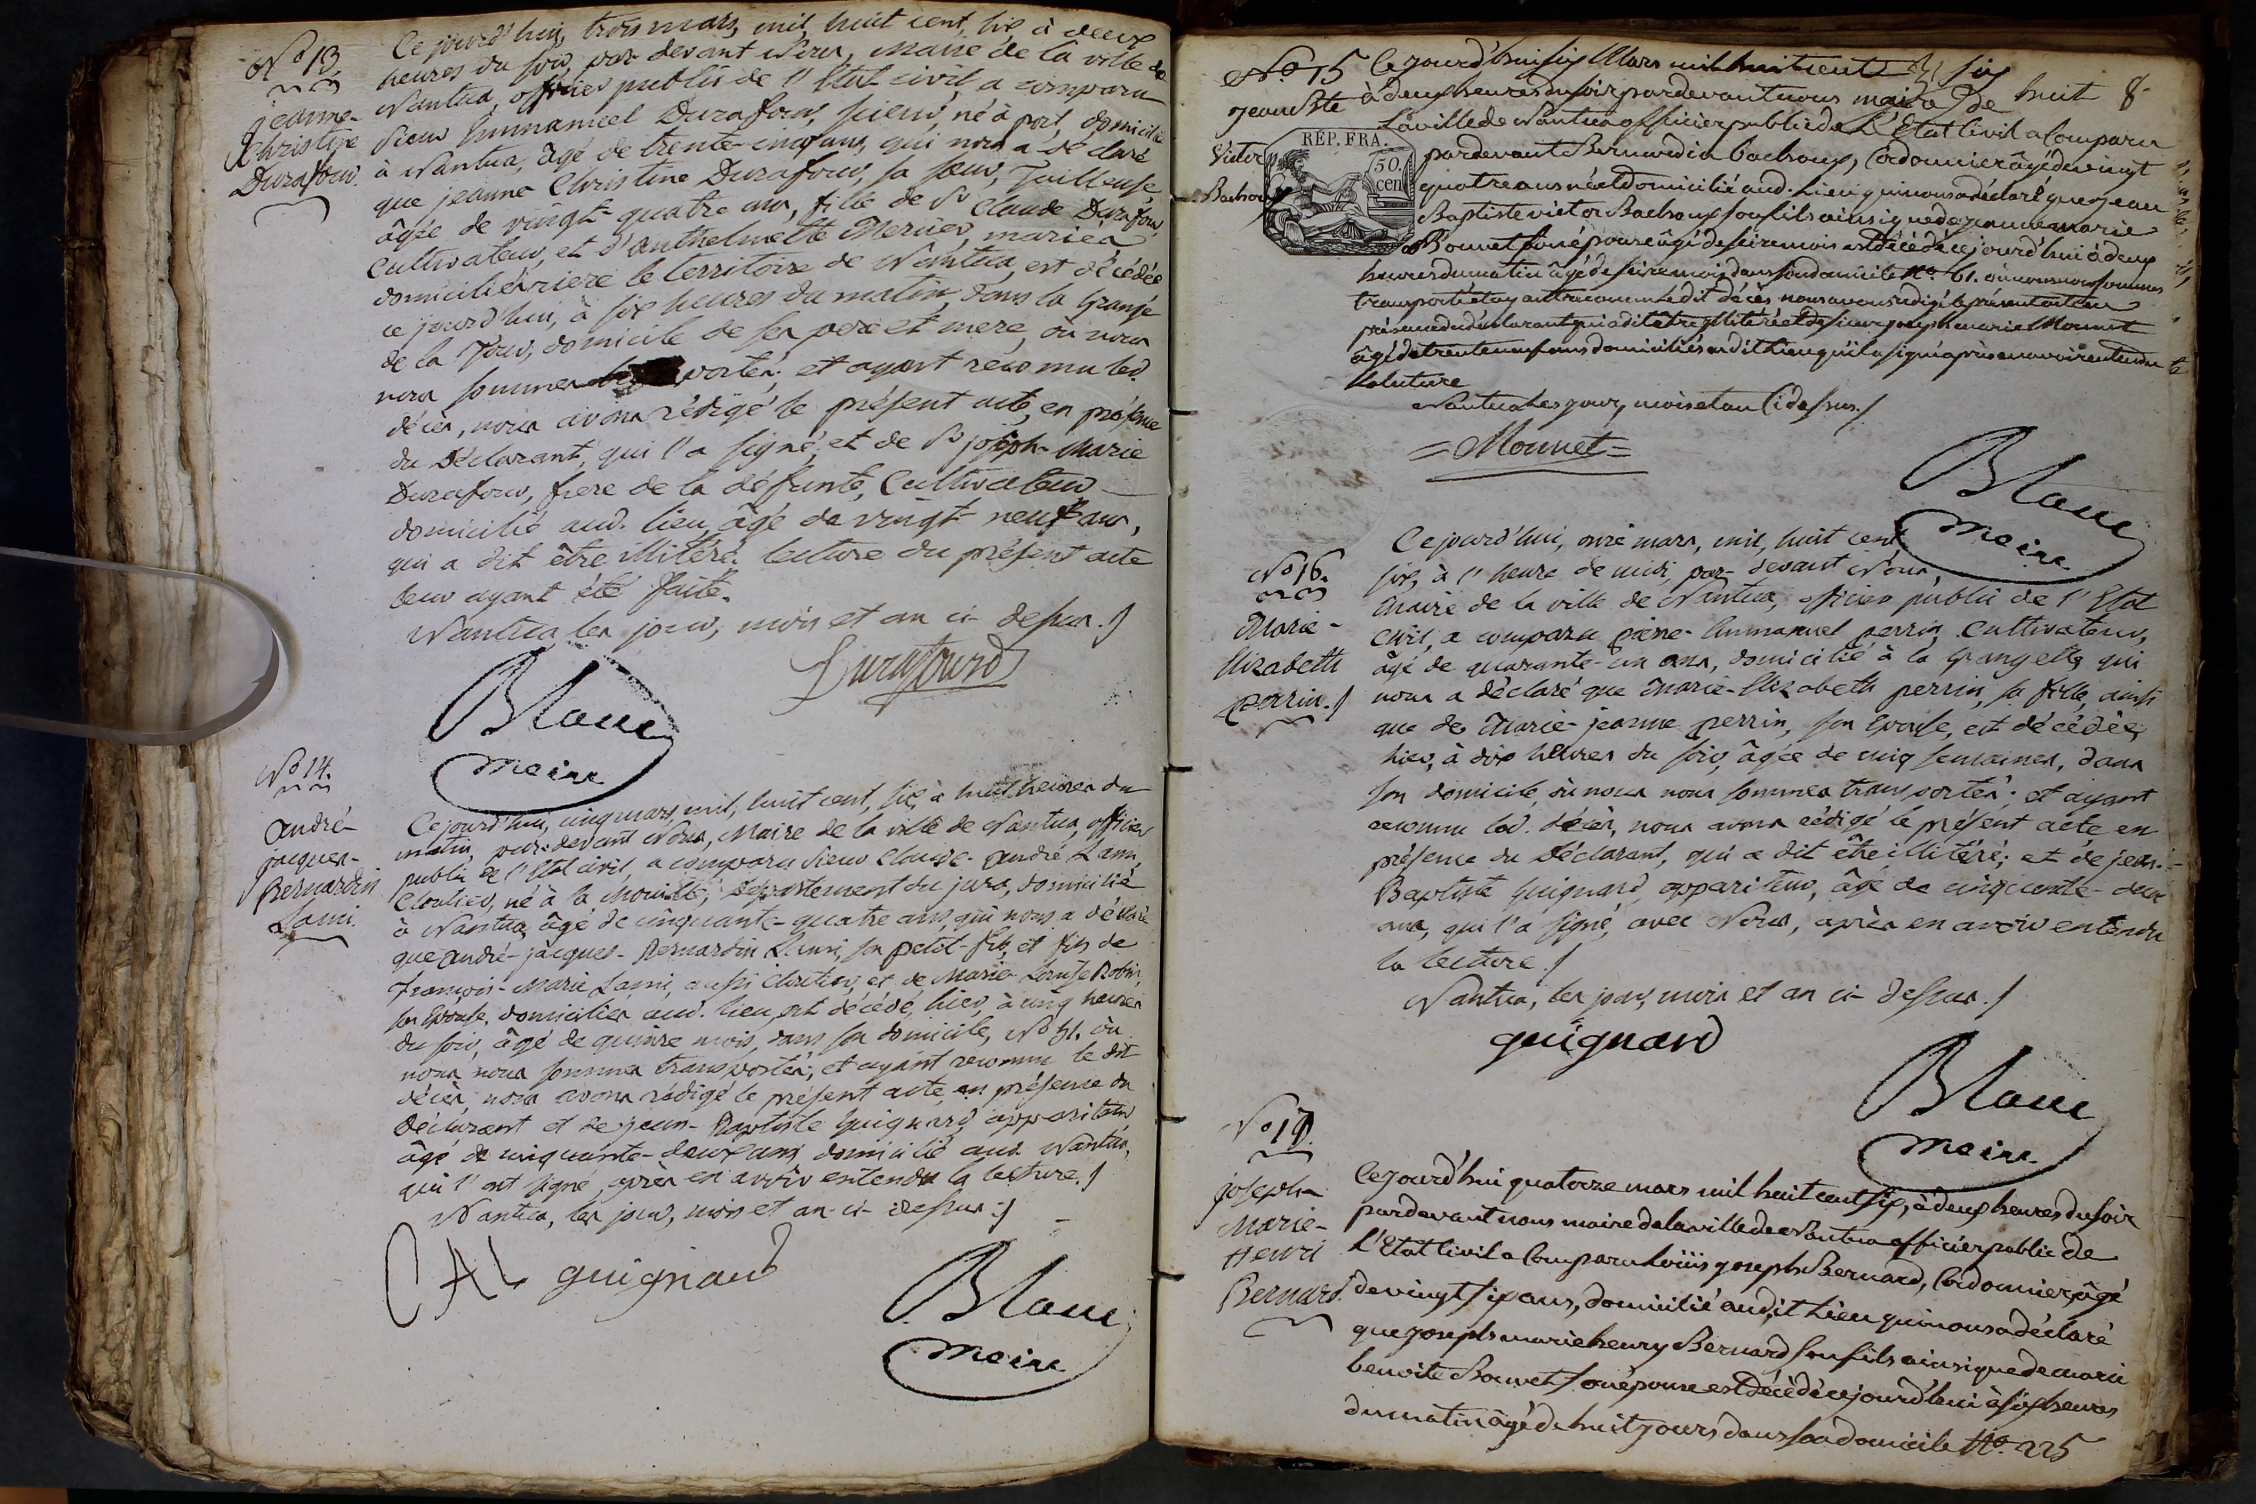 N° 13.
jeanne-
Christine
Durafour.
Ce jourd'hui, trois mars, mil, huit cent, six, à deux
heures du soir, par-devant Nous, Maire de la ville de
Nantua, officier public de l'Etat civil, a comparu
Sieur Emmanuel Durafour, né à port, domicilié
à Nantua, âgé de trente-cinq ans, qui nous a déclaré
que jeanne Christine Durafour, sa sœur, Tailleuse,
âgée de vingt-quatre ans, fille de Sr Claude Durafour,
Cultivateur, et d'anthelmette Mercier, mariés
domiciliés riere le territoire de Nantua, est décédée
ce jourd'hui, à six heures du matin, dans la Grange
de la Tour, domicile de ses pere et mere, où nous
nous sommes portés; et ayant reconnu led.
décès, nous avons rédigé le présent acte, en présence
du Déclarant, qui l'a signé, et de Sr joseph-Marie
Durafour, frere de la défunte, Cultivateur
domicilié aud. lieu, âgé de vingt-neuf ans,
qui a dit être illitéré. lecture du présent acte
leur ayant été faite.
Nantua les jour, mois et an ci-dessus./
Durafourd
Blanc
maire
N° 14.
andré-
jacques-
Bernardin
Lami.
Ce jourd'hui, cinq mars, mil, huit cent, six, à huit heures du
matin, par-devant Nous, Maire de la ville de Nantua, officier
public de l'Etat civil, a comparu Sieur Claude-andré Lami,
Cloutier, né à la Mouille, Département du jura, domicilié
à Nantua, âgé de cinquante-quatre ans, qui nous a déclaré
que andré-jacques-Bernardin Lami, son petit-fils, et fils de
françois-Marie Lami, aussi Cloutier, et de Marie-Louise Robin,
son Epouse, domiciliés aud. lieu, est décédé, hier, à cinq heures
du soir, âgé de quinze mois, dans son domicile, N° 51. où
nous nous sommes transportés; et ayant reconnu le dit
décès, nous avons rédigé le présent acte en présence du
Déclarant et de jean-Baptiste Guignard appariteur
âgé de cinquante-deux ans domicilié aud. Nantua,
qui l'ont signé, après en avoir entendu la lecture./
Nantua, les jour, mois et an ci-dessus./
CAL guignard
Blanc
maire
huit 8
N° 15
jean Bte
Victor
Bachoux
RÉP. FRA.
50.
cen
Ce jourd'hui six Mars mil huit cent six
à deux heures du soir par devant nous maire de
La ville de Nantua officier public de L'Etat Civil a Comparu
par devant Bernardin Bachoux, Cordonnier âgé de vingt
quatre ans né et domicilié aud. Lieu qui nous a déclaré que jean
Baptiste victor Bachoux son fils ainsi que de jeanne marie
Bonnet son épouse âgé de seize mois est décédé ce jourd'hui à deux
heures du matin âgé de seize mois dans son domicile N° 61. où nous nous sommes
transporté et ayant reconnu Ledit décès nous avons rédigé le présent acte en
présence du déclarant qui a dit être illitéré et de sieur joseph marie Mounet
âgé de trente neuf ans domiciliés audit Lieu qui l'a signé après en avoir entendu
La lecture
Nantua Les jour, mois et an Ci dessus./
= Mounet =
Blanc
maire
N° 16.
Marie-
Elizabeth
perrin./
Ce jourd'hui, onze mars, mil, huit cent
six, à l'heure de midi, par-devant Nous,
Maire de la ville de Nantua, officier public de l'Etat
Civil, a comparu pierre-Emmanuel perrin, Cultivateur,
âgé de quarante-un ans, domicilié à la Grangette, qui
nous a déclaré que Marie-Elizabeth perrin, sa fille, ainsi
que de Marie-jeanne perrin, son Epouse, est décédée,
hier, à dix heures du soir, âgée de cinq semaines, dans
son domicile, où nous nous sommes transportés; et ayant
reconnu led. décès, nous avons rédigé le présent acte en
présence du Déclarant, qui a dit être illitéré; et de jean-
Baptiste Guignard, appariteur, âgé de cinquante-deux
ans, qui l'a signé, avec Nous, après en avoir entendu
la lecture./
Nantua, les jour, mois et an ci-dessus./
guignard
Blanc
maire
N° 17.
joseph-
Marie-
Henri
Bernard.
Ce jourd'hui quatorze mars mil huit cent six, à deux heures du soir
par devant nous maire de la ville de Nantua officier public de
L'Etat Civil a Comparu Loüis joseph Bernard, Cordonnier, âgé
de vingt six ans, domicilié audit Lieu qui nous a déclaré
que joseph marie henry Bernard son fils ainsi que de marie
benoite Bouvet son épouse est décédé ce jourd'hui à six heures
du matin âgé de huit jours dans son domicile N° 225